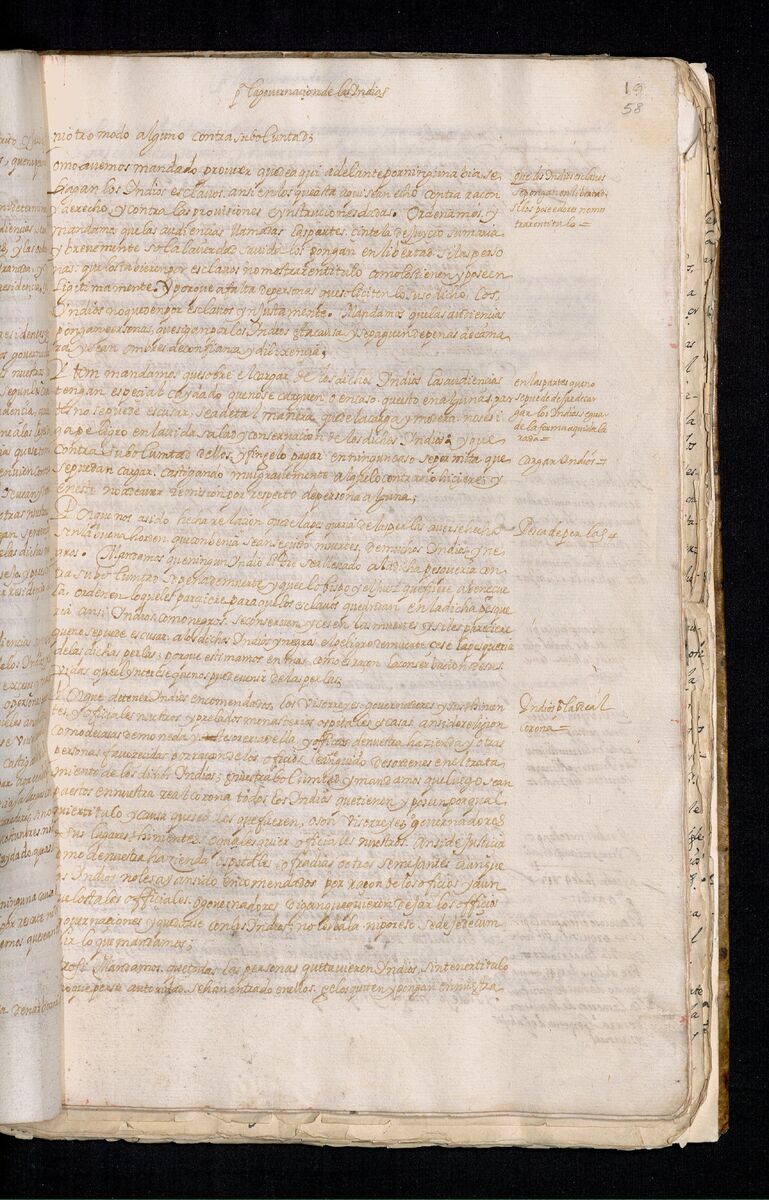 pª la governacion de las Indias
19
58
ni otro modo alguno contra su boluntad;
omo avemos mandado proveer que de aqui adelante por ninguna bia se
hagan los Indios esclavos, ansi en los que hasta aqui se an echo contra razon
y derecho y contra las provisiones e ynstruciones dadas. Ordenamos, y
mandamos que las audiencias llamadas las partes, sin tela de juycio sumaria
y brevemente sola la verdad savida los pongan en libertad si las perso
nas que los tubieren por esclavos no mostraren titulo como los tienen y poseen
ligitimamente. Y porque a falta de personas que soliciten lo susodicho, los
Indios no queden por esclavos ynjustamente. Mandamos que las audiencias
pongan personas, que sigan por los Indios esta causa y se paguen de penas de cama
ra, y sean ombres de confiança y diligencia;
Y Iten mandamos que sobre el cargar de los dichos Indios las audiencias
tengan especial cuydado que no se carguen o en caso, que esto en algunas par
tes no se puede escusar, sea de tal manera que de la carga ymodera. no se si
ga peligro en la vida, salud y conservacion de los dichos Indios; y que
contra su boluntad dellos, y sin gelo pagar, en ningun caso se permita que
se puedan cargar, castigando muy gravemente al que lo contrario hiciere; y
en esto no a de aver remision por respecto de persona alguna;
Porque nos a sido hecha relacion que de la pesqueria de las perlas averse hecho
sin la buena horden que conbenia se an seguido muertes, de muchos Indios y ne
gros. Mandamos que ningun Indio libre sea llevado a la dicha pesqueria con
tra su boluntad so pena de muerte y que el obispo y el juez que fuere a veneçue
la, ordenen lo que les pareciere para que los esclavos que andan en la dicha pesque
ria, ansi Indios, como negros, se conserven, y cesen las muertes y si les pareciere
que no se puede escusar a los dichos Indios y negros el peligro de muerte çese la pesqueria
de las dichas perlas; porque estimamos en mas, como es razon la conserbacion de sus
vidas que el ynterese que nos puede venir de las perlas;
Porque de tener Indios encomendados, los Visorreyes, governadores y sus thenien
tes, y officiales nuestros y prelados monasterios ospitales y casas ansi de religion
como de casas de moneda y thesoreria della y officios de nuestra hazienda y otras
personas favorecidas por razon de los oficios, se an siguido desordenes en el trata
miento de los dichos Indios; es nuestra boluntad y mandamos que luego sean
puestos en nuestra real corona todos los Indios que tienen y poseen por qual
quier titulo y causa que sea los que fueren, o son Visorreyes, governadores
o sus lugares thinientes, o qualesquier officiales nuestros ansi de justicia
como de nuestra hazienda, ospitales, cofradias o otras semejantes aunque
los Indios no les ayan sido encomendados por razon de los oficios y aun
que los tales officiales, o governadores digan que quieren dejar los officios
o governaciones y quedarse con los Indios no les bala ni por eso se deje de cum
plir lo que mandamos;
Otrosi Mandamos, que todas las personas que tuvieren Indios, sin tener titulo
sino que por su autoridad, se han entrado en ellos, se los quiten y pongan en nuestra
que los Indios esclavos
se pongan en libertad,
si los poseedores no mo
straren titulo=
en las partes que no
se puede dejar de car
gar los Indios sea
de la forma aqui decla
rada=
Cargar Indios=
Pesca de perlas=
Indios pª la Real
corona=